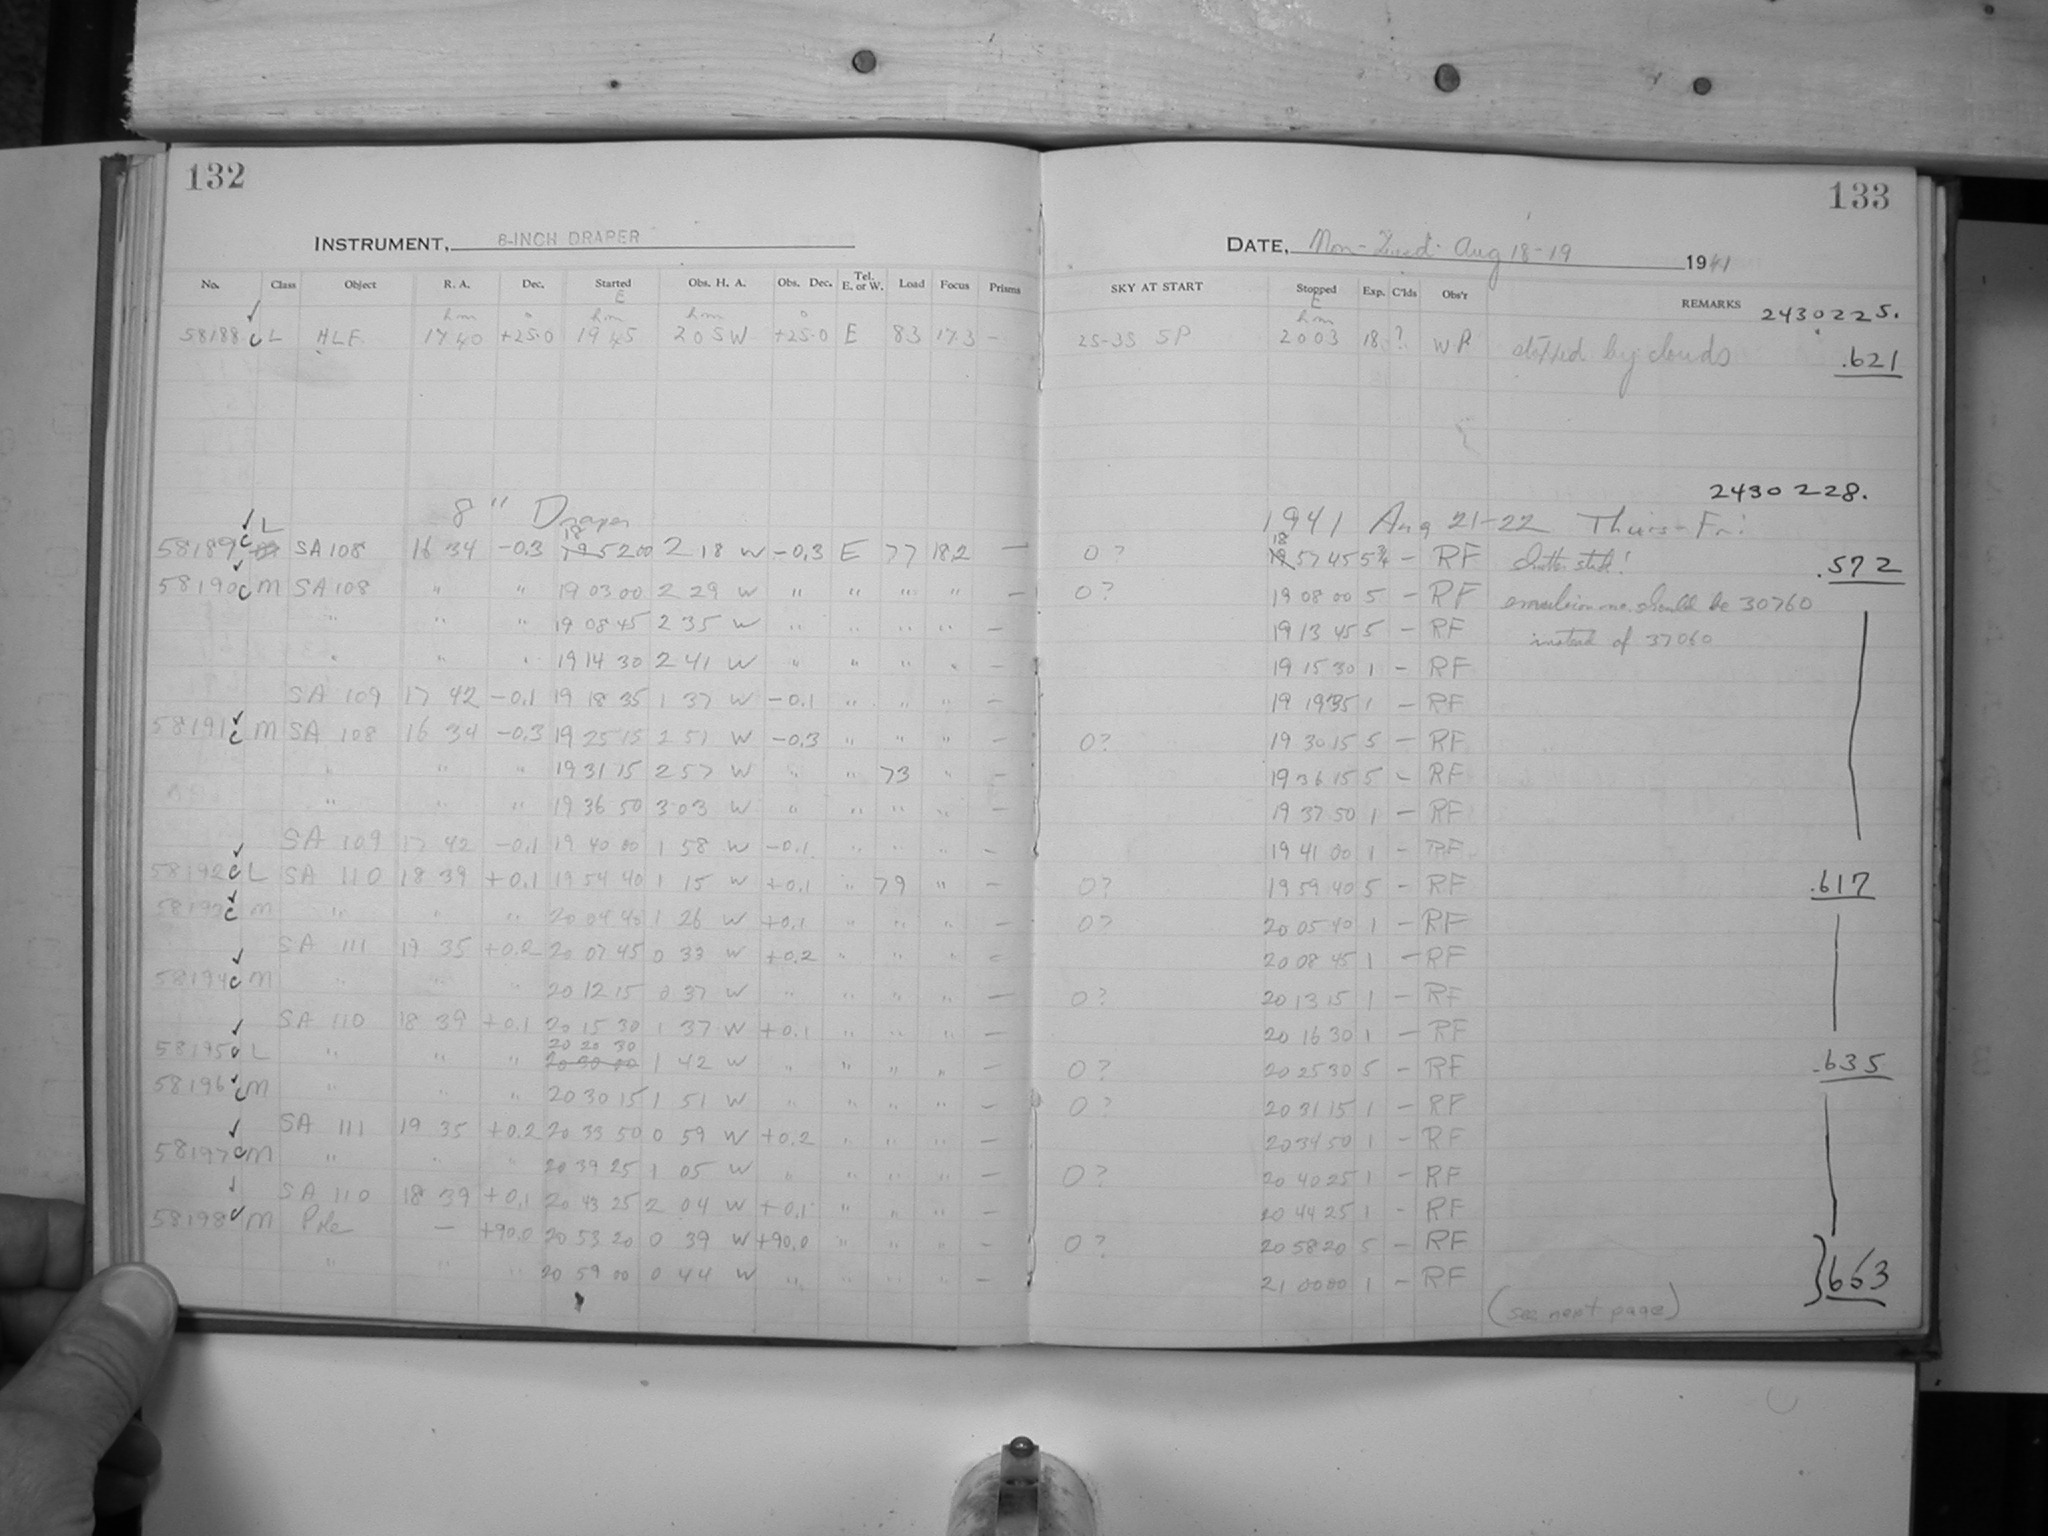 132
133
INSTRUMENT, 8-INCH DRAPER
DATE, Mon - Tues. Aug 18-19 1941
No. Class Object R. A. Dec. Started Obs. H. A. Obs. Dec. Tel. E. or W. Load Focus Prisms SKY AT START Stopped Exp. C'lds Obs'r REMARKS
h m ° E h m h m ° E h m 2430225.
58188 c L HLF 17 40 +25.0 19 45 2 05 W +25.0 E 83 17.3 - 25-35 SP 20 03 18 ? WP stopped by clouds .621
2430228.
8" Draper 1941 Aug 21-22 Thurs-Fri
58189 c L SA 108 16 34 -0.3 18 52 00 2 18 W -0.3 E 77 18.2 — 0? 18 57 45 5¾ - RF shutter stuck! .572
58190 c M SA 108 " " 19 03 00 2 29 W " " " " — 0? 19 08 00 5 - RF emulsion no. should be 30760
" " " 19 08 45 2 35 W " " " " — 19 13 45 5 - RF instead of 37060
" " " 19 14 30 2 41 W " " " " — 19 15 30 1 - RF
SA 109 17 42 -0.1 19 18 35 1 37 W -0.1 " " " — 19 19 35 1 - RF
58191 c M SA 108 16 34 -0.3 19 25 15 2 51 W -0.3 " " " — 0? 19 30 15 5 - RF
" " " 19 31 15 2 57 W " " 73 " — 19 36 15 5 - RF
" " " 19 36 50 3 03 W " " " " — 19 37 50 1 - RF
SA 109 17 42 -0.1 19 40 00 1 58 W -0.1 " " " — 19 41 00 1 - RF
58192 c L SA 110 18 39 +0.1 19 54 40 1 15 W +0.1 " 79 " — 0? 19 59 40 5 - RF .617
58193 c M " " " 20 04 40 1 26 W +0.1 " " " — 0? 20 05 40 1 - RF
SA 111 19 35 +0.2 20 07 45 0 33 W +0.2 " " " — 20 08 45 1 - RF
58194 c M " " " 20 12 15 0 37 W " " " " — 0? 20 13 15 1 - RF
SA 110 18 39 +0.1 20 15 30 1 37 W +0.1 " " " — 20 16 30 1 - RF
58195 c L " " " 20 20 30 1 42 W " " " " — 0? 20 25 30 5 - RF .635
58196 c M " " " 20 30 15 1 51 W " " " " — 0? 20 31 15 1 - RF
SA 111 19 35 +0.2 20 33 50 0 59 W +0.2 " " " — 20 34 50 1 - RF
58197 c M " " " 20 39 25 1 05 W " " " " — 0? 20 40 25 1 - RF
SA 110 18 39 +0.1 20 43 25 2 04 W +0.1 " " " — 20 44 25 1 - RF
58198 c M Pole — +90.0 20 53 20 0 39 W +90.0 " " " — 0? 20 58 20 5 - RF
" " " 20 59 00 0 44 W " " " " — 21 00 00 1 - RF } 663
(see next page)